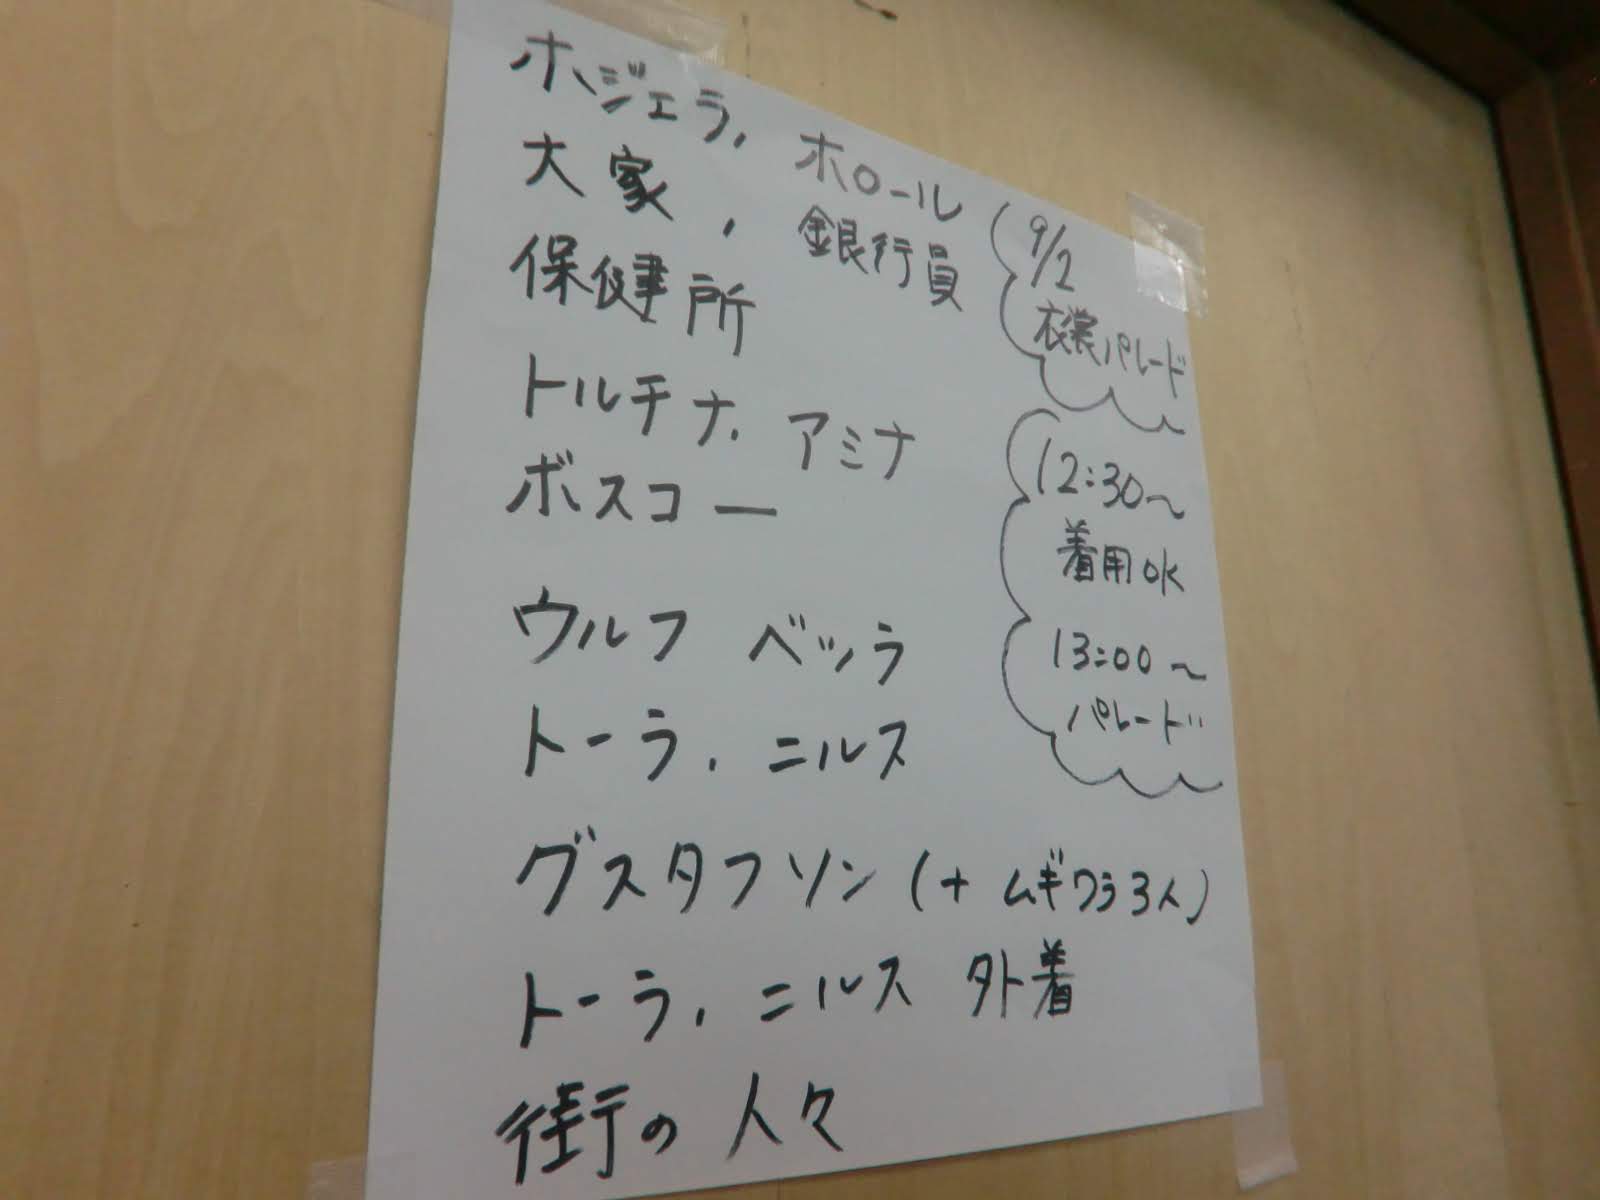 ホジェラ, ホロール
大家, 銀行員
保健所
トルチナ, アミナ
ボスコー
ウルフ ベッラ
トーラ, ニルス
グスタフソン (+ ムギワラ3人)
トーラ, ニルス 外着
街の人々
9/2
衣裳パレード
12:30〜
着用OK
13:00〜
パレード